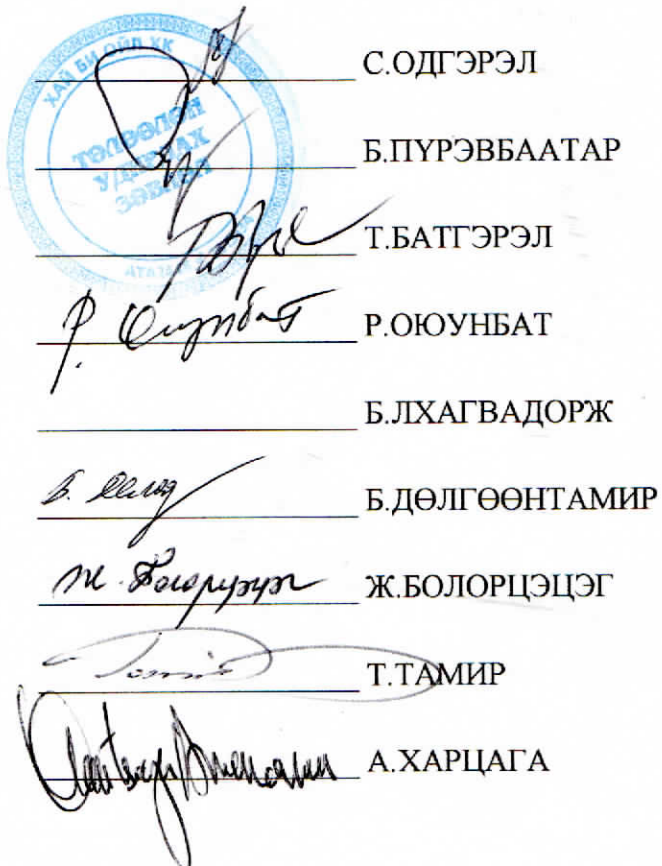 ХАЙ БИ ОЙЛ ХК
ТӨЛӨӨЛӨН
УДИРДАХ
ЗӨВЛӨЛ
С.ОДГЭРЭЛ
Б.ПҮРЭВБААТАР
Т.БАТГЭРЭЛ
Р. Оюунбат Р.ОЮУНБАТ
Б.ЛХАГВАДОРЖ
Б.ДӨЛГӨӨНТАМИР
Ж.БОЛОРЦЭЦЭГ
Т.ТАМИР
А.ХАРЦАГА